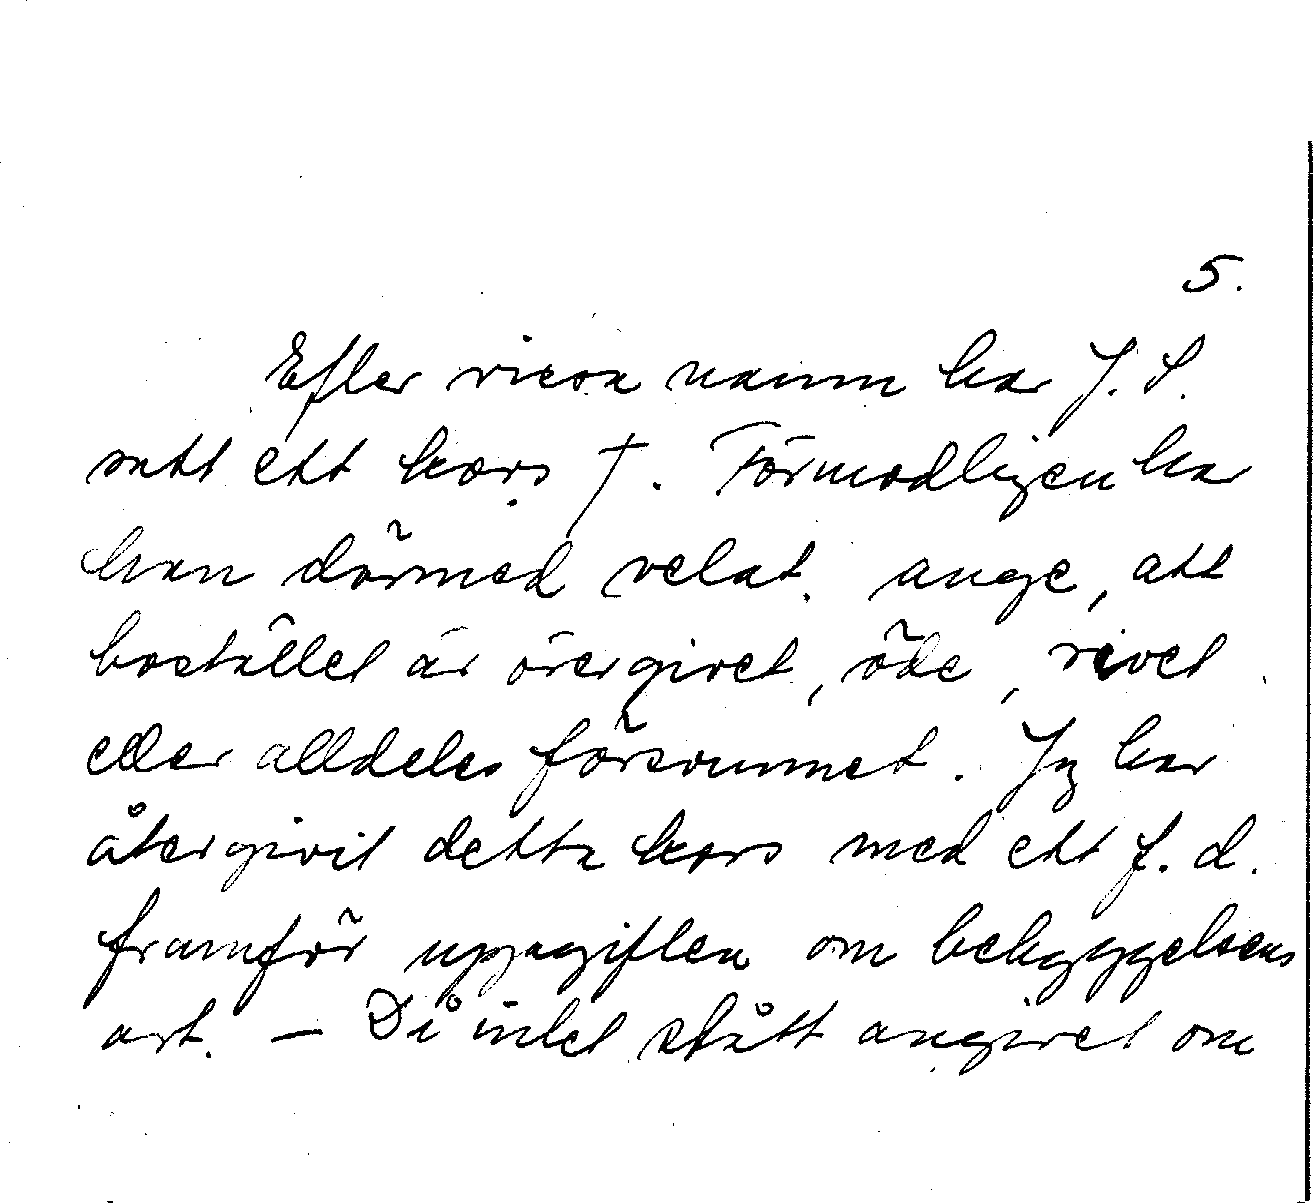 5.
Efter vissa namn har J. S.
satt ett kors †. Förmodligen har
han därmed velat ange, att
bostället är övergivet, öde, rivet
eller alldeles försvunnet. Jag har
återgivit detta kors med ett f. d.
framför uppgiften om bebyggelsens
art. – Då intet stått angivet om